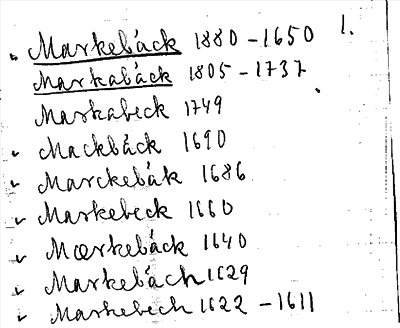 Markebäck 1880-1650 1.
Markabäck 1805-1737
Markabeck 1749
Mackbäck 1690
Marckebäk 1686
Markebeck 1660
Mœrkebäck 1640
Markebäch 1629
Markebech 1622-1611